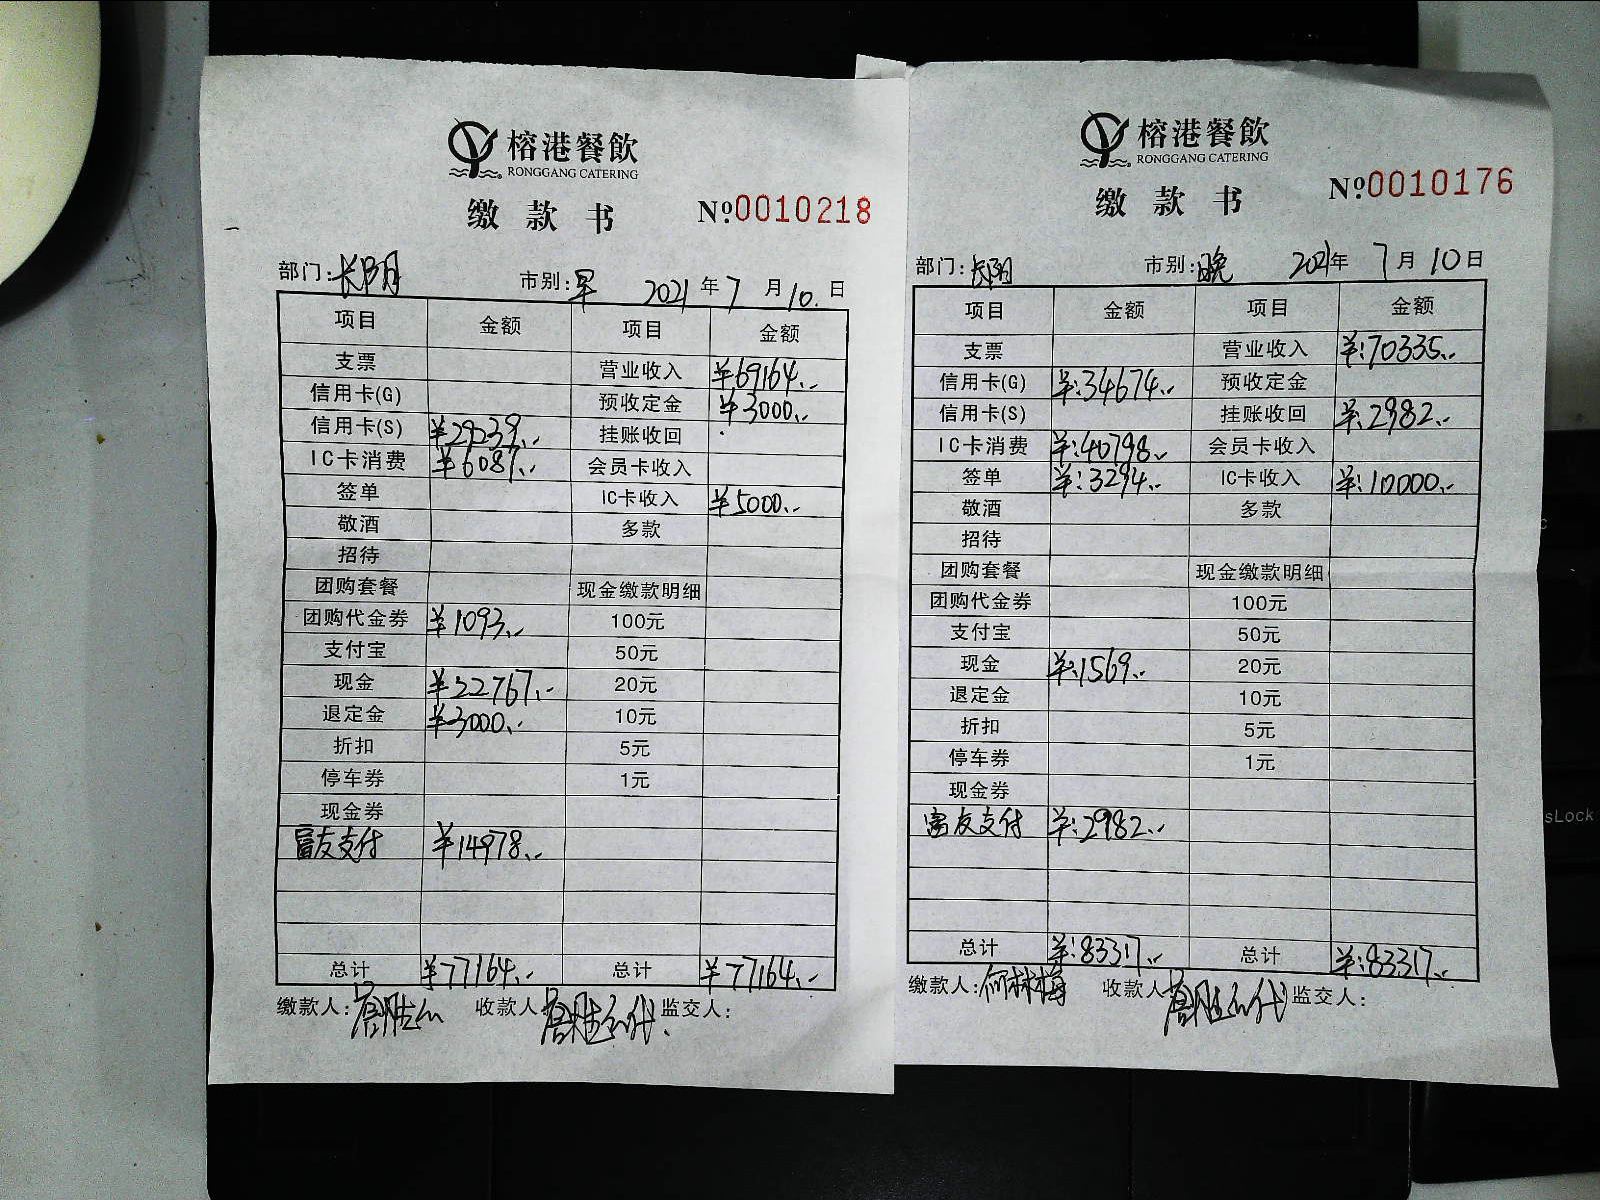 榕港餐飲
RONGGANG CATERING
缴款书 №0010218
部门:长阳 市别:早 2021年7月10.日
项目 金额 项目 金额
支票 营业收入 ¥69164.
信用卡(G) 预收定金 ¥3000.
信用卡(S) ¥29239. 挂账收回
IC卡消费 ¥6087. 会员卡收入
签单 IC卡收入 ¥5000.
敬酒 多款
招待
团购套餐 现金缴款明细
团购代金券 ¥1093. 100元
支付宝 50元
现金 ¥22767. 20元
退定金 ¥3000. 10元
折扣 5元
停车券 1元
现金券
富友支付 ¥14978.
总计 ¥77164. 总计 ¥77164.
缴款人: 收款人: 监交人:
榕港餐飲
RONGGANG CATERING
缴款书 №0010176
部门:长阳 市别:晚 2021年7月10日
项目 金额 项目 金额
支票 营业收入 ¥:70335.
信用卡(G) ¥:34674. 预收定金
信用卡(S) 挂账收回 ¥:2982.
IC卡消费 ¥:40798. 会员卡收入
签单 ¥:3294. IC卡收入 ¥:10000.
敬酒 多款
招待
团购套餐 现金缴款明细
团购代金券 100元
支付宝 50元
现金 ¥:1569. 20元
退定金 10元
折扣 5元
停车券 1元
现金券
富友支付 ¥:2982.
总计 ¥:83317. 总计 ¥:83317.
缴款人:何林梅 收款人 监交人:
sLock